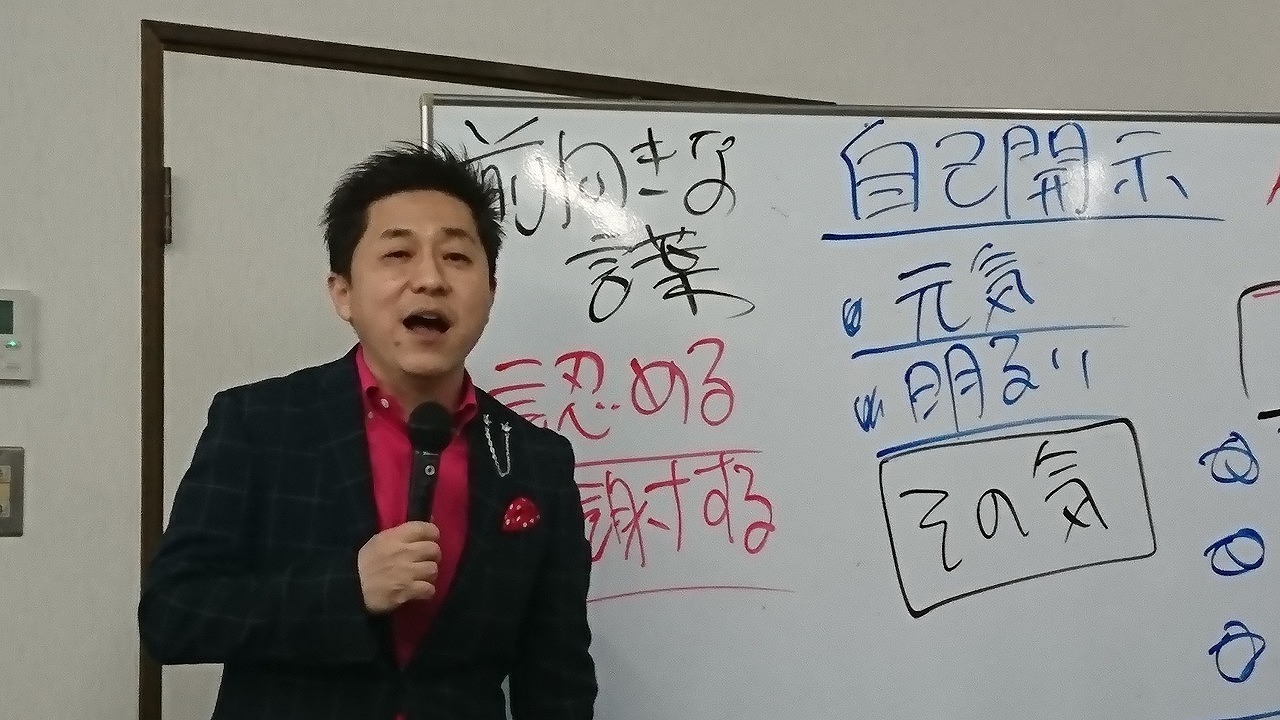 前向きな
言葉
認める
謝する
自己開示
元気
明るい
その気